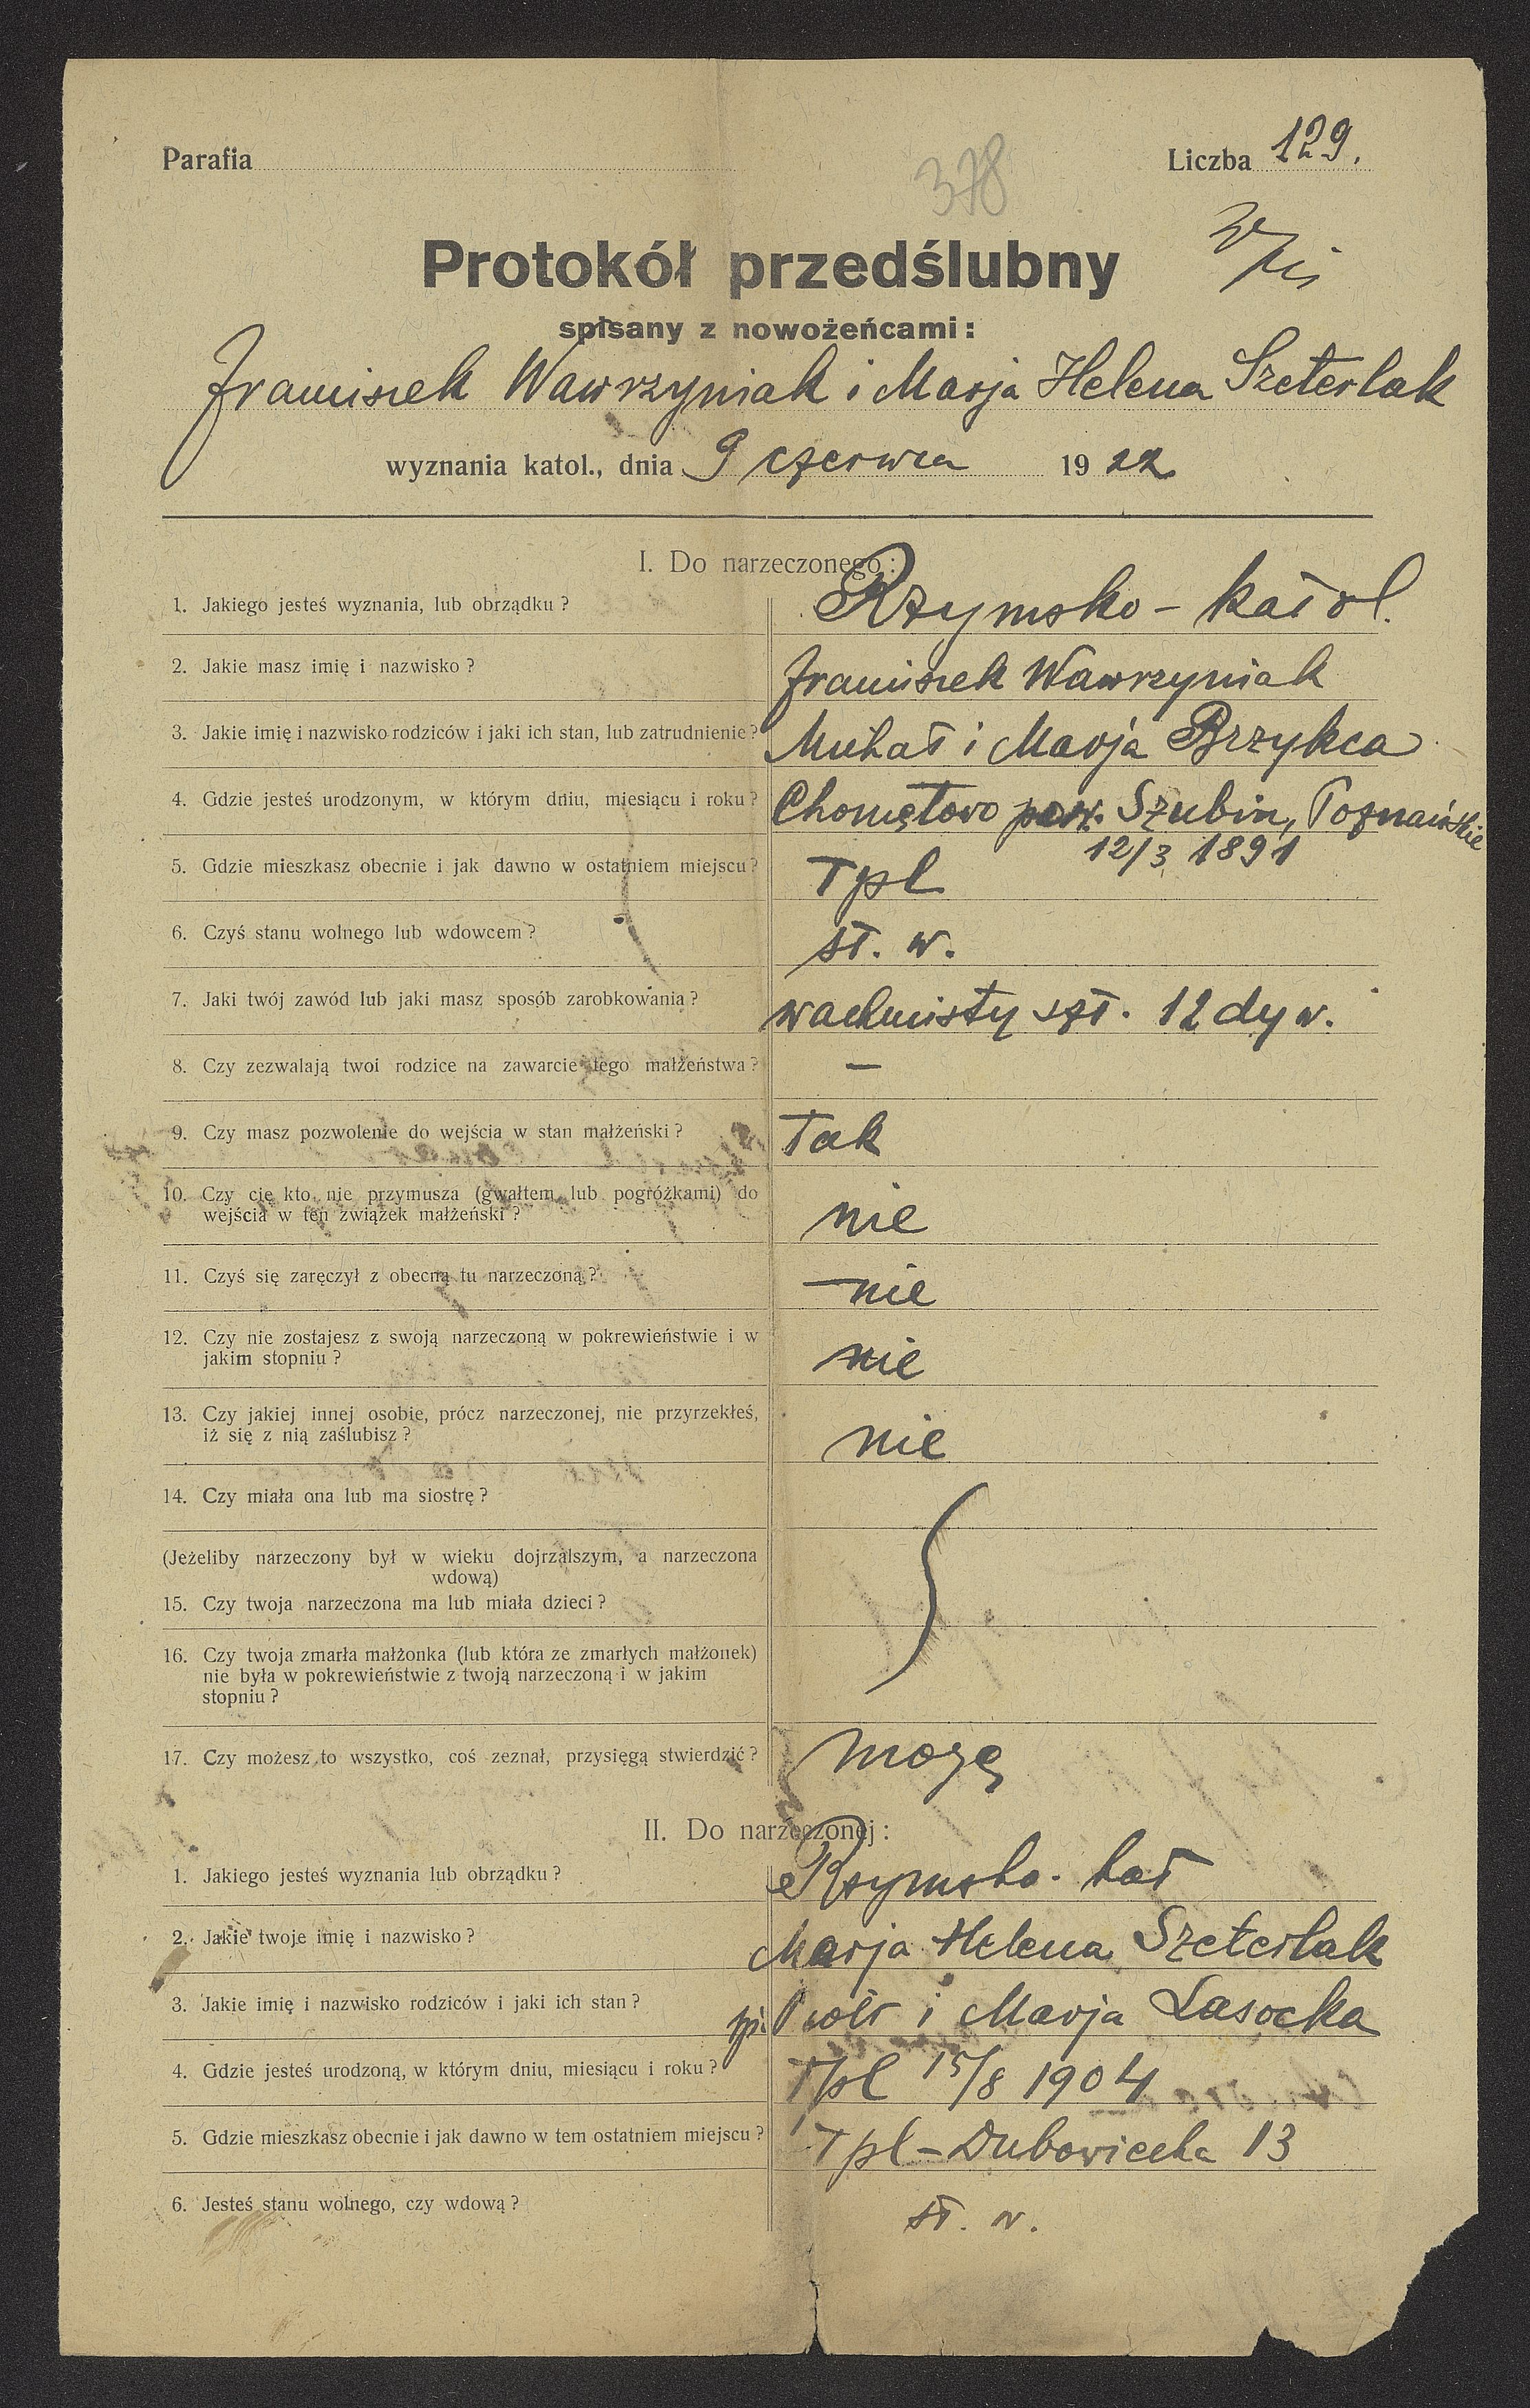 Parafia
Liczba 129.
378
Protokół przedślubny
spisany z nowożeńcami:
Franciszek Wawrzyniak i Marja Helena Szeterlak
wyznania katol., dnia 9 czerwca 1922
I. Do narzeczonego:
1. Jakiego jesteś wyznania, lub obrządku? Rzymsko - katol.
2. Jakie masz imię i nazwisko? Franciszek Wawrzyniak
3. Jakie imię i nazwisko rodziców i jaki ich stan, lub zatrudnienie? Michał i Marja Brzykca
4. Gdzie jesteś urodzonym, w którym dniu, miesiącu i roku? Chomętowo pow. Szubin, Poznańskie
12/3 1891
5. Gdzie mieszkasz obecnie i jak dawno w ostatniem miejscu? Tpl
6. Czyś stanu wolnego lub wdowcem? st. w.
7. Jaki twój zawód lub jaki masz sposób zarobkowania? wachmisty szt. 12 dyw.
8. Czy zezwalają twoi rodzice na zawarcie tego małżeństwa? —
9. Czy masz pozwolenie do wejścia w stan małżeński? Tak
10. Czy cię kto nie przymusza (gwałtem lub pogróżkami) do
wejścia w ten związek małżeński? nie
11. Czyś się zaręczył z obecną tu narzeczoną? nie
12. Czy nie zostajesz z swoją narzeczoną w pokrewieństwie i w
jakim stopniu? nie
13. Czy jakiej innej osobie, prócz narzeczonej, nie przyrzekłeś,
iż się z nią zaślubisz? nie
14. Czy miała ona lub ma siostrę?
(Jeżeliby narzeczony był w wieku dojrzalszym, a narzeczona
wdową)
15. Czy twoja narzeczona ma lub miała dzieci?
16. Czy twoja zmarła małżonka (lub która ze zmarłych małżonek)
nie była w pokrewieństwie z twoją narzeczoną i w jakim
stopniu?
17. Czy możesz to wszystko, coś zeznał, przysięgą stwierdzić? mogę
II. Do narzeczonej:
1. Jakiego jesteś wyznania lub obrządku? Rzymsko - kat
2. Jakie twoje imię i nazwisko? Marja Helena Szeterlak
3. Jakie imię i nazwisko rodziców i jaki ich stan? Piotr i Marja Lasocka
4. Gdzie jesteś urodzoną, w którym dniu, miesiącu i roku? Tpl 15/8 1904
5. Gdzie mieszkasz obecnie i jak dawno w tem ostatniem miejscu? Tpl - Dubowiecka 13
6. Jesteś stanu wolnego, czy wdową? st. w.